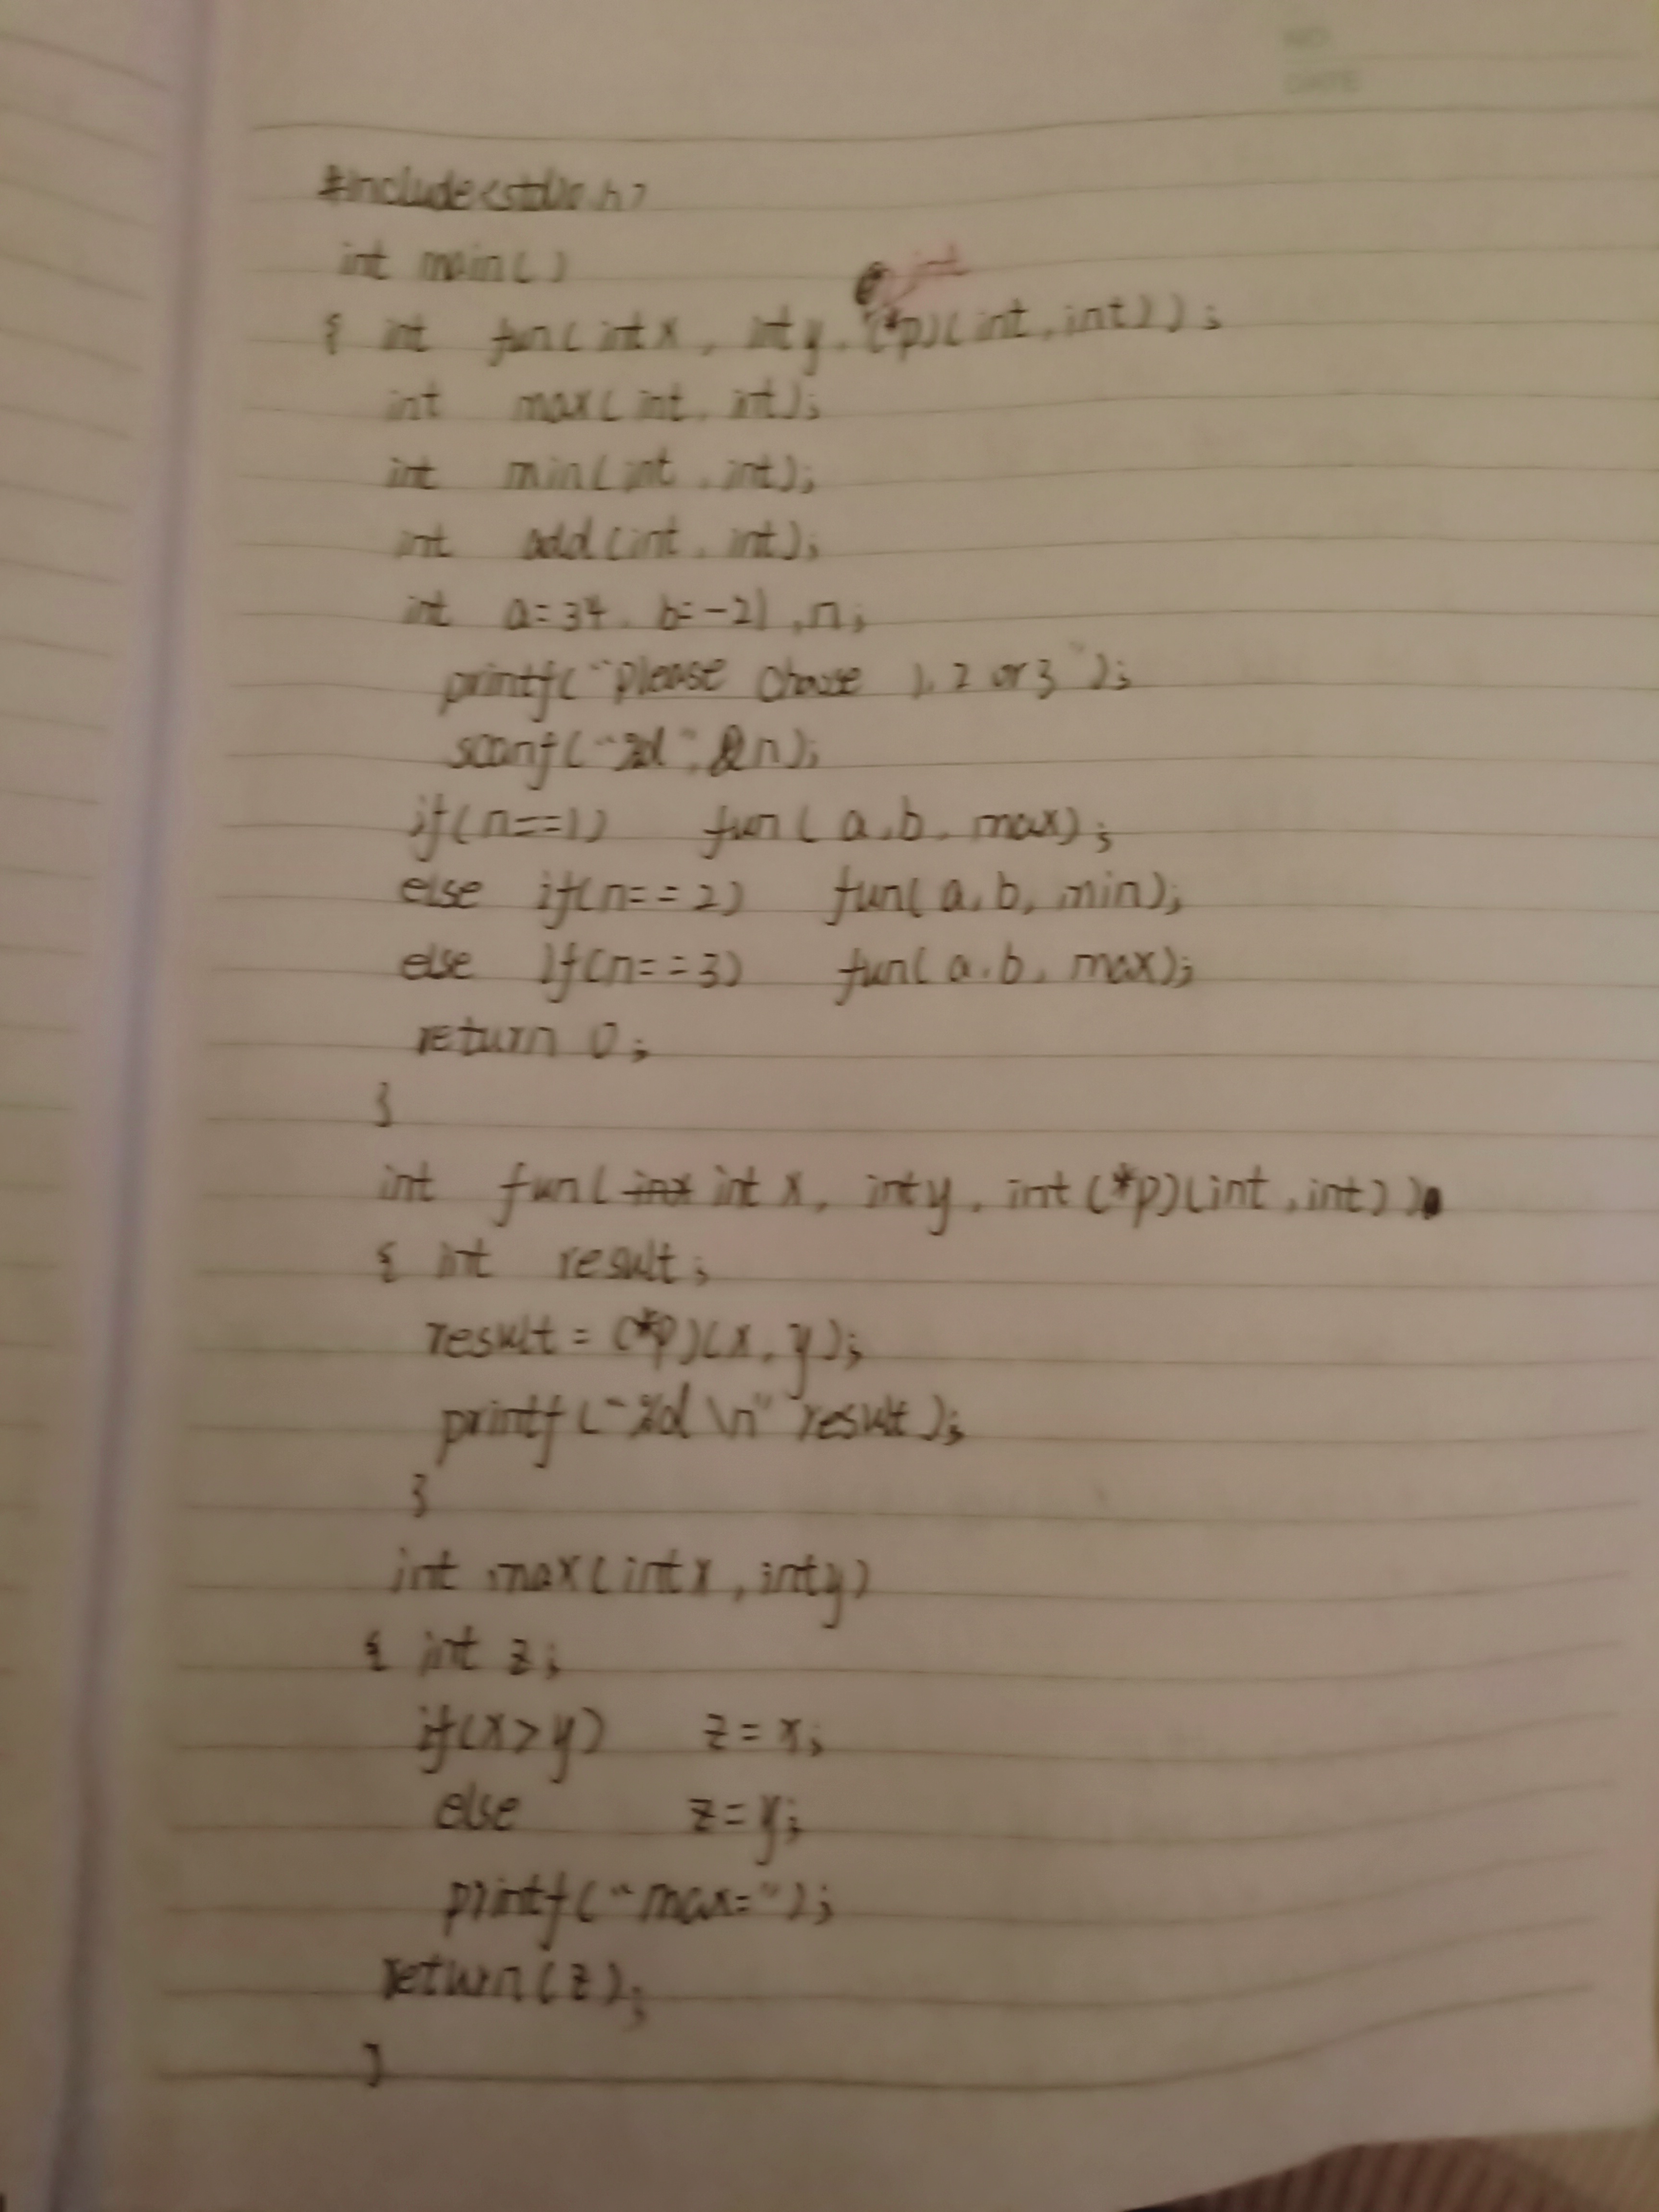 NO.
DATE
#include<stdio.h>
int main()
int
{ int fun(int x, int y, (*p)(int, int));
int max(int, int);
int min(int, int);
int add(int, int);
int a=34, b=-21, n;
printf("please choose 1, 2 or 3");
scanf("%d", &n);
if(n==1) fun(a,b, max);
else if(n==2) fun(a,b, min);
else if(n==3) fun(a,b, max);
return 0;
}
int fun( int x, int y, int(*p)(int, int))
{ int result;
result = (*p)(x, y);
printf("%d \n" result);
}
int max(int x, int y)
{ int z;
if(x>y) z=x;
else z=y;
printf("max=");
return(z);
}